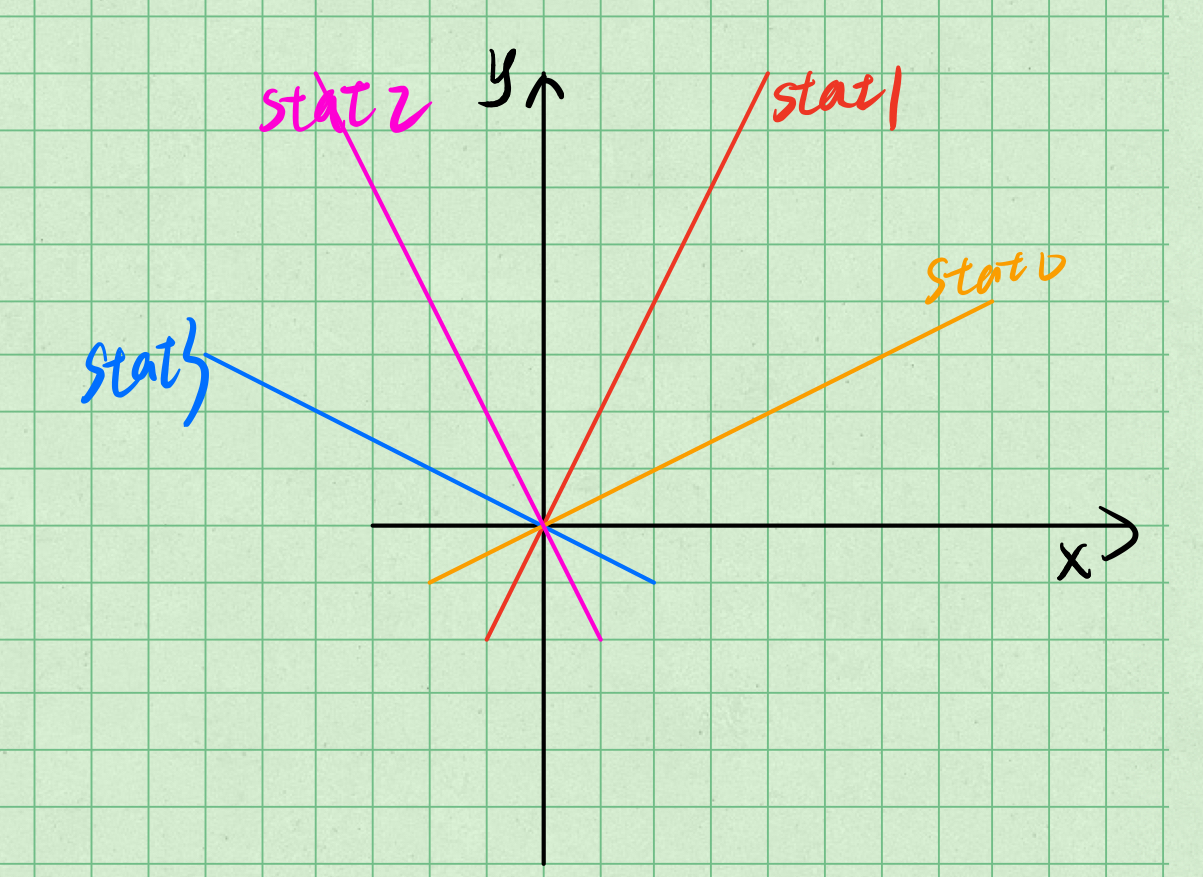 y
stat2
stat1
stat0
stat3
x